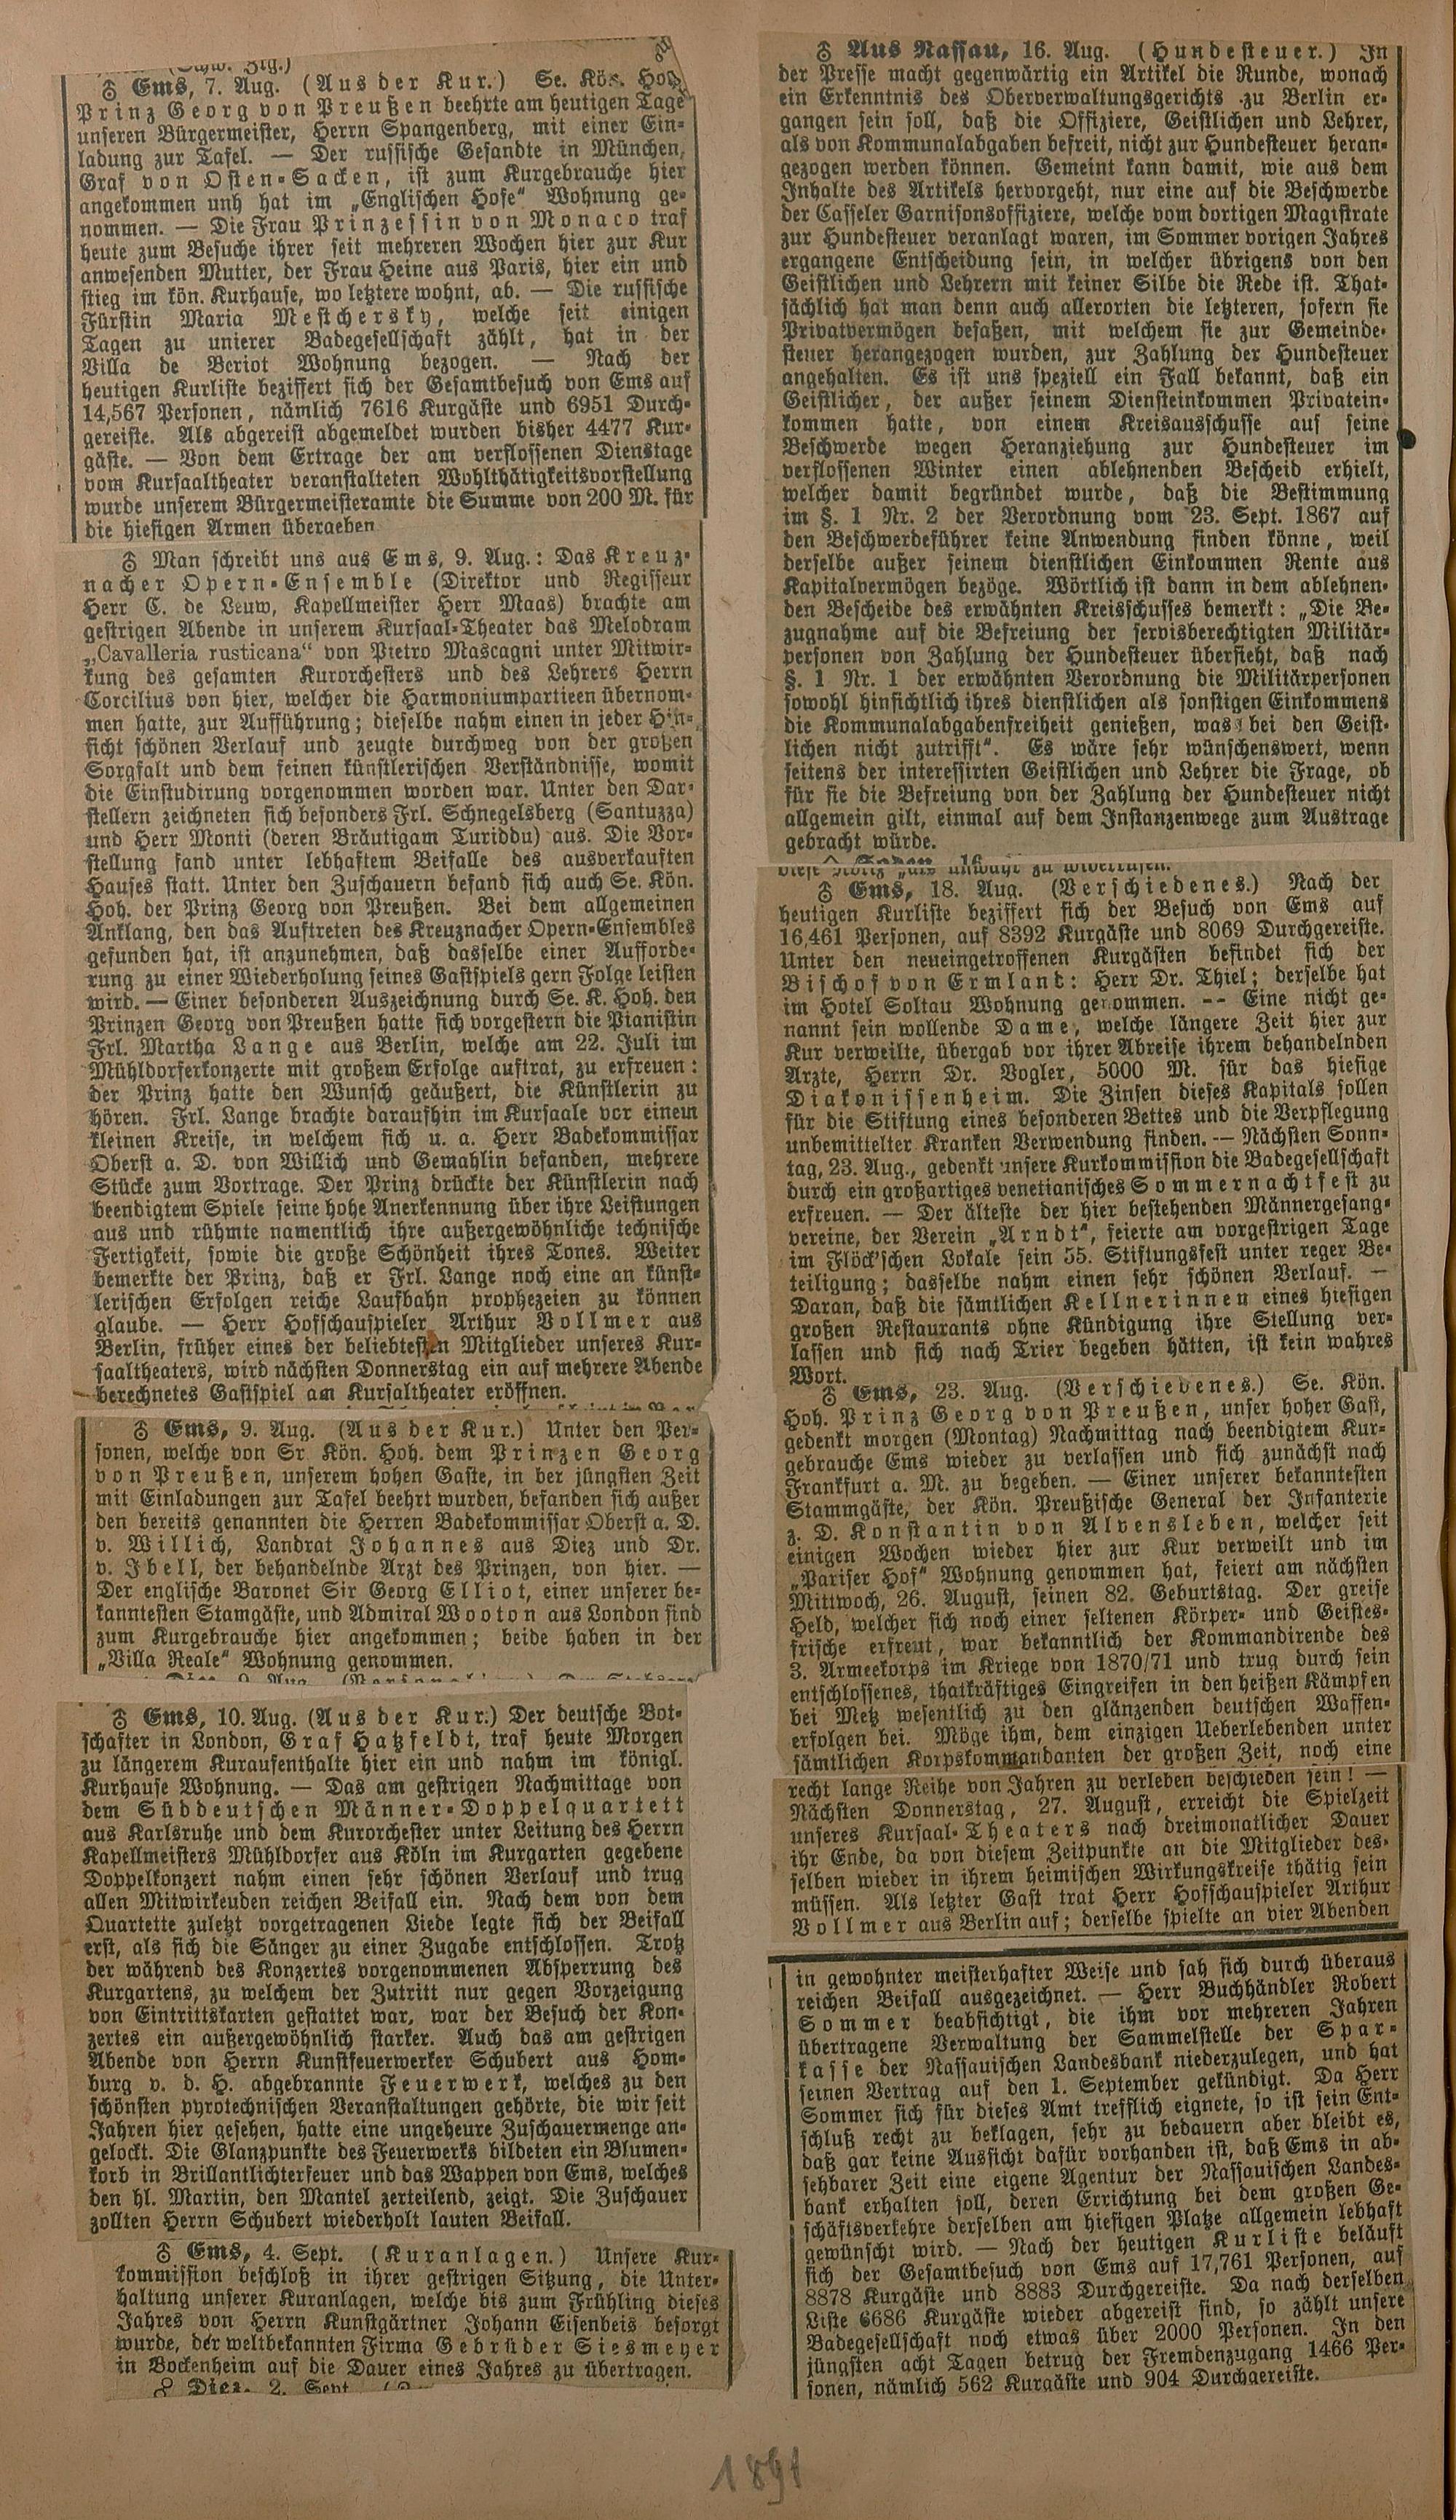 ♁ Ems, 7. Aug. (Aus der Kur.) Se. Kön. Hoh.
Prinz Georg von Preußen beehrte am heutigen Tage
unseren Bürgermeister, Herrn Spangenberg, mit einer Ein-
ladung zur Tafel. — Der russische Gesandte in München,
Graf von Osten-Sacken, ist zum Kurgebrauche hier
angekommen unh hat im „Englischen Hofe“ Wohnung ge-
nommen. — Die Frau Prinzessin von Monaco traf
heute zum Besuche ihrer seit mehreren Wochen hier zur Kur
anwesenden Mutter, der Frau Heine aus Paris, hier ein und
stieg im kön. Kurhause, wo letztere wohnt, ab. — Die russische
Fürstin Maria Mestchersky, welche seit einigen
Tagen zu unserer Badegesellschaft zählt, hat in der
Villa de Beriot Wohnung bezogen. — Nach der
heutigen Kurliste beziffert sich der Gesamtbesuch von Ems auf
14,567 Personen, nämlich 7616 Kurgäste und 6951 Durch-
gereiste. Als abgereist abgemeldet wurden bisher 4477 Kur-
gäste. — Von dem Ertrage der am verflossenen Dienstage
vom Kursaaltheater veranstalteten Wohlthätigkeitsvorstellung
wurde unserem Bürgermeisteramte die Summe von 200 M. für
die hiesigen Armen übergeben
♁ Man schreibt uns aus Ems, 9. Aug.: Das Kreuz-
nacher Opern-Ensemble (Direktor und Regisseur
Herr C. de Leuw, Kapellmeister Herr Maas) brachte am
gestrigen Abende in unserem Kursaal-Theater das Melodram
„Cavalleria rusticana“ von Pietro Mascagni unter Mitwir-
kung des gesamten Kurorchesters und des Lehrers Herrn
Corcilius von hier, welcher die Harmoniumpartieen übernom-
men hatte, zur Aufführung; dieselbe nahm einen in jeder Hin-
sicht schönen Verlauf und zeugte durchweg von der großen
Sorgfalt und dem feinen künstlerischen Verständnisse, womit
die Einstudirung vorgenommen worden war. Unter den Dar-
stellern zeichneten sich besonders Frl. Schnegelsberg (Santuzza)
und Herr Monti (deren Bräutigam Turiddu) aus. Die Vor-
stellung fand unter lebhaftem Beifalle des ausverkauften
Hauses statt. Unter den Zuschauern befand sich auch Se. Kön.
Hoh. der Prinz Georg von Preußen. Bei dem allgemeinen
Anklang, den das Auftreten des Kreuznacher Opern-Ensembles
gefunden hat, ist anzunehmen, daß dasselbe einer Aufforde-
rung zu einer Wiederholung seines Gastspiels gern Folge leisten
wird. — Einer besonderen Auszeichnung durch Se. K. Hoh. den
Prinzen Georg von Preußen hatte sich vorgestern die Pianistin
Frl. Martha Lange aus Berlin, welche am 22. Juli im
Mühldorferkonzerte mit großem Erfolge auftrat, zu erfreuen:
der Prinz hatte den Wunsch geäußert, die Künstlerin zu
hören. Frl. Lange brachte daraufhin im Kursaale vor einem
kleinen Kreise, in welchem sich u. a. Herr Badekommissar
Oberst a. D. von Willich und Gemahlin befanden, mehrere
Stücke zum Vortrage. Der Prinz drückte der Künstlerin nach
beendigtem Spiele seine hohe Anerkennung über ihre Leistungen
aus und rühmte namentlich ihre außergewöhnliche technische
Fertigkeit, sowie die große Schönheit ihres Tones. Weiter
bemerkte der Prinz, daß er Frl. Lange noch eine an künst-
lerischen Erfolgen reiche Laufbahn prophezeien zu können
glaube. — Herr Hofschauspieler Arthur Vollmer aus
Berlin, früher eines der beliebtesten Mitglieder unseres Kur-
saaltheaters, wird nächsten Donnerstag ein auf mehrere Abende
berechnetes Gastspiel am Kursaltheater eröffnen.
♁ Ems, 9. Aug. (Aus der Kur.) Unter den Per-
sonen, welche von Sr. Kön. Hoh. dem Prinzen Georg
von Preußen, unserem hohen Gaste, in der jüngsten Zeit
mit Einladungen zur Tafel beehrt wurden, befanden sich außer
den bereits genannten die Herren Badekommissar Oberst a. D.
v. Willich, Landrat Johannes aus Diez und Dr.
v. Ibell, der behandelnde Arzt des Prinzen, von hier. —
Der englische Baronet Sir Georg Elliot, einer unserer be-
kanntesten Stamgäste, und Admiral Wooton aus London sind
zum Kurgebrauche hier angekommen; beide haben in der
„Villa Reale“ Wohnung genommen.
♁ Ems, 10. Aug. (Aus der Kur.) Der deutsche Bot-
schafter in London, Graf Hatzfeldt, traf heute Morgen
zu längerem Kuraufenthalte hier ein und nahm im königl.
Kurhause Wohnung. — Das am gestrigen Nachmittage von
dem Süddeutschen Männer-Doppelquartett
aus Karlsruhe und dem Kurorchester unter Leitung des Herrn
Kapellmeisters Mühldorfer aus Köln im Kurgarten gegebene
Doppelkonzert nahm einen sehr schönen Verlauf und trug
allen Mitwirkeuden reichen Beifall ein. Nach dem von dem
Quartette zuletzt vorgetragenen Liede legte sich der Beifall
erst, als sich die Sänger zu einer Zugabe entschlossen. Trotz
der während des Konzertes vorgenommenen Absperrung des
Kurgartens, zu welchem der Zutritt nur gegen Vorzeigung
von Eintrittskarten gestattet war, war der Besuch der Kon-
zertes ein außergewöhnlich starker. Auch das am gestrigen
Abende von Herrn Kunstfeuerwerker Schubert aus Hom-
burg v. d. H. abgebrannte Feuerwerk, welches zu den
schönsten pyrotechnischen Veranstaltungen gehörte, die wir seit
Jahren hier gesehen, hatte eine ungeheure Zuschauermenge an-
gelockt. Die Glanzpunkte des Feuerwerks bildeten ein Blumen-
korb in Brillantlichterfeuer und das Wappen von Ems, welches
den hl. Martin, den Mantel zerteilend, zeigt. Die Zuschauer
zollten Herrn Schubert wiederholt lauten Beifall.
♁ Ems, 4. Sept. (Kuranlagen.) Unsere Kur-
kommission beschloß in ihrer gestrigen Sitzung, die Unter-
haltung unserer Kuranlagen, welche bis zum Frühling dieses
Jahres von Herrn Kunstgärtner Johann Eisenbeis besorgt
wurde, der weltbekannten Firma Gebrüder Siesmeyer
in Bockenheim auf die Dauer eines Jahres zu übertragen.
Diez, 2. Sept.
♁ Aus Nassau, 16. Aug. (Hundesteuer.) In
der Presse macht gegenwärtig ein Artikel die Runde, wonach
ein Erkenntnis des Oberverwaltungsgerichts zu Berlin er-
gangen sein soll, daß die Offiziere, Geistlichen und Lehrer,
als von Kommunalabgaben befreit, nicht zur Hundesteuer heran-
gezogen werden können. Gemeint kann damit, wie aus dem
Inhalte des Artikels hervorgeht, nur eine auf die Beschwerde
der Casseler Garnisonsoffiziere, welche vom dortigen Magistrate
zur Hundesteuer veranlagt waren, im Sommer vorigen Jahres
ergangene Entscheidung sein, in welcher übrigens von den
Geistlichen und Lehrern mit keiner Silbe die Rede ist. That-
sächlich hat man denn auch allerorten die letzteren, sofern sie
Privatvermögen besaßen, mit welchem sie zur Gemeinde-
steuer herangezogen wurden, zur Zahlung der Hundesteuer
angehalten. Es ist uns speziell ein Fall bekannt, daß ein
Geistlicher, der außer seinem Diensteinkommen Privatein-
kommen hatte, von einem Kreisausschusse auf seine
Beschwerde wegen Heranziehung zur Hundesteuer im
verflossenen Winter einen ablehnenden Bescheid erhielt,
welcher damit begründet wurde, daß die Bestimmung
im §. 1 Nr. 2 der Verordnung vom 23. Sept. 1867 auf
den Beschwerdeführer keine Anwendung finden könne, weil
derselbe außer seinem dienstlichen Einkommen Rente aus
Kapitalvermögen bezöge. Wörtlich ist dann in dem ablehnen-
den Bescheide des erwähnten Kreisschusses bemerkt: „Die Be-
zugnahme auf die Befreiung der servisberechtigten Militär-
personen von Zahlung der Hundesteuer übersieht, daß nach
§. 1 Nr. 1 der erwähnten Verordnung die Militärpersonen
sowohl hinsichtlich ihres dienstlichen als sonstigen Einkommens
die Kommunalabgabenfreiheit genießen, was bei den Geist-
lichen nicht zutrifft“. Es wäre sehr wünschenswert, wenn
seitens der interessirten Geistlichen und Lehrer die Frage, ob
für sie die Befreiung von der Zahlung der Hundesteuer nicht
allgemein gilt, einmal auf dem Instanzenwege zum Austrage
gebracht würde.
♁ Ems, 18. Aug. (Verschiedenes.) Nach der
heutigen Kurliste beziffert sich der Besuch von Ems auf
16,461 Personen, auf 8392 Kurgäste und 8069 Durchgereiste.
Unter den neueingetroffenen Kurgästen befindet sich der
Bischof von Ermland: Herr Dr. Thiel; derselbe hat
im Hotel Soltau Wohnung genommen. -- Eine nicht ge-
nannt sein wollende Dame, welche längere Zeit hier zur
Kur verweilte, übergab vor ihrer Abreise ihrem behandelnden
Arzte, Herrn Dr. Vogler, 5000 M. für das hiesige
Diakonissenheim. Die Zinsen dieses Kapitals sollen
für die Stiftung eines besonderen Bettes und die Verpflegung
unbemittelter Kranken Verwendung finden. -- Nächsten Sonn-
tag, 23. Aug., gedenkt unsere Kurkommission die Badegesellschaft
durch ein großartiges venetianisches Sommernachtfest zu
erfreuen. — Der älteste der hier bestehenden Männergesang-
vereine, der Verein „Arndt“, feierte am vorgestrigen Tage
im Flöck'schen Lokale sein 55. Stiftungsfest unter reger Be-
teiligung; dasselbe nahm einen sehr schönen Verlauf. —
Daran, daß die sämtlichen Kellnerinnen eines hiesigen
großen Restaurants ohne Kündigung ihre Stellung ver-
lassen und sich nach Trier begeben hätten, ist kein wahres
Wort.
♁ Ems, 23. Aug. (Verschiedenes.) Se. Kön.
Hoh. Prinz Georg von Preußen, unser hoher Gast,
gedenkt morgen (Montag) Nachmittag nach beendigtem Kur-
gebrauche Ems wieder zu verlassen und sich zunächst nach
Frankfurt a. M. zu begeben. — Einer unserer bekanntesten
Stammgäste, der Kön. Preußische General der Infanterie
z. D. Konstantin von Alvensleben, welcher seit
einigen Wochen wieder hier zur Kur verweilt und im
„Pariser Hof“ Wohnung genommen hat, feiert am nächsten
Mittwoch, 26. August, seinen 82. Geburtstag. Der greise
Held, welcher sich noch einer seltenen Körper- und Geistes-
frische erfreut, war bekanntlich der Kommandirende des
3. Armeekorps im Kriege von 1870/71 und trug durch sein
entschlossenes, thatkräftiges Eingreifen in den heißen Kämpfen
bei Metz wesentlich zu den glänzenden deutschen Waffen-
erfolgen bei. Möge ihm, dem einzigen Ueberlebenden unter
sämtlichen Korpskommandanten der großen Zeit, noch eine
recht lange Reihe von Jahren zu verleben beschieden sein! —
Nächsten Donnerstag, 27. August, erreicht die Spielzeit
unseres Kursaal-Theaters nach dreimonatlicher Dauer
ihr Ende, da von diesem Zeitpunkte an die Mitglieder des-
selben wieder in ihrem heimischen Wirkungskreise thätig sein
müssen. Als letzter Gast trat Herr Hofschauspieler Arthur
Vollmer aus Berlin auf; derselbe spielte an vier Abenden
in gewohnter meisterhafter Weise und sah sich durch überaus
reichen Beifall ausgezeichnet. — Herr Buchhändler Robert
Sommer beabsichtigt, die ihm vor mehreren Jahren
übertragene Verwaltung der Sammelstelle der Spar-
kasse der Nassauischen Landesbank niederzulegen, und hat
seinen Vertrag auf den 1. September gekündigt. Da Herr
Sommer sich für dieses Amt trefflich eignete, so ist sein Ent-
schluß recht zu beklagen, sehr zu bedauern aber bleibt es,
daß gar keine Aussicht dafür vorhanden ist, daß Ems in ab-
sehbarer Zeit eine eigene Agentur der Nassauischen Landes-
bank erhalten soll, deren Errichtung bei dem großen Ge-
schäftsverkehre derselben am hiesigen Platze allgemein lebhaft
gewünscht wird. — Nach der heutigen Kurliste beläuft
sich der Gesamtbesuch von Ems auf 17,761 Personen, auf
8878 Kurgäste und 8883 Durchgereiste. Da nach derselben
Liste 6686 Kurgäste wieder abgereist sind, so zählt unsere
Badegesellschaft noch etwas über 2000 Personen. In den
jüngsten acht Tagen betrug der Fremdenzugang 1466 Per-
sonen, nämlich 562 Kurgäste und 904 Durchgereiste.
1891